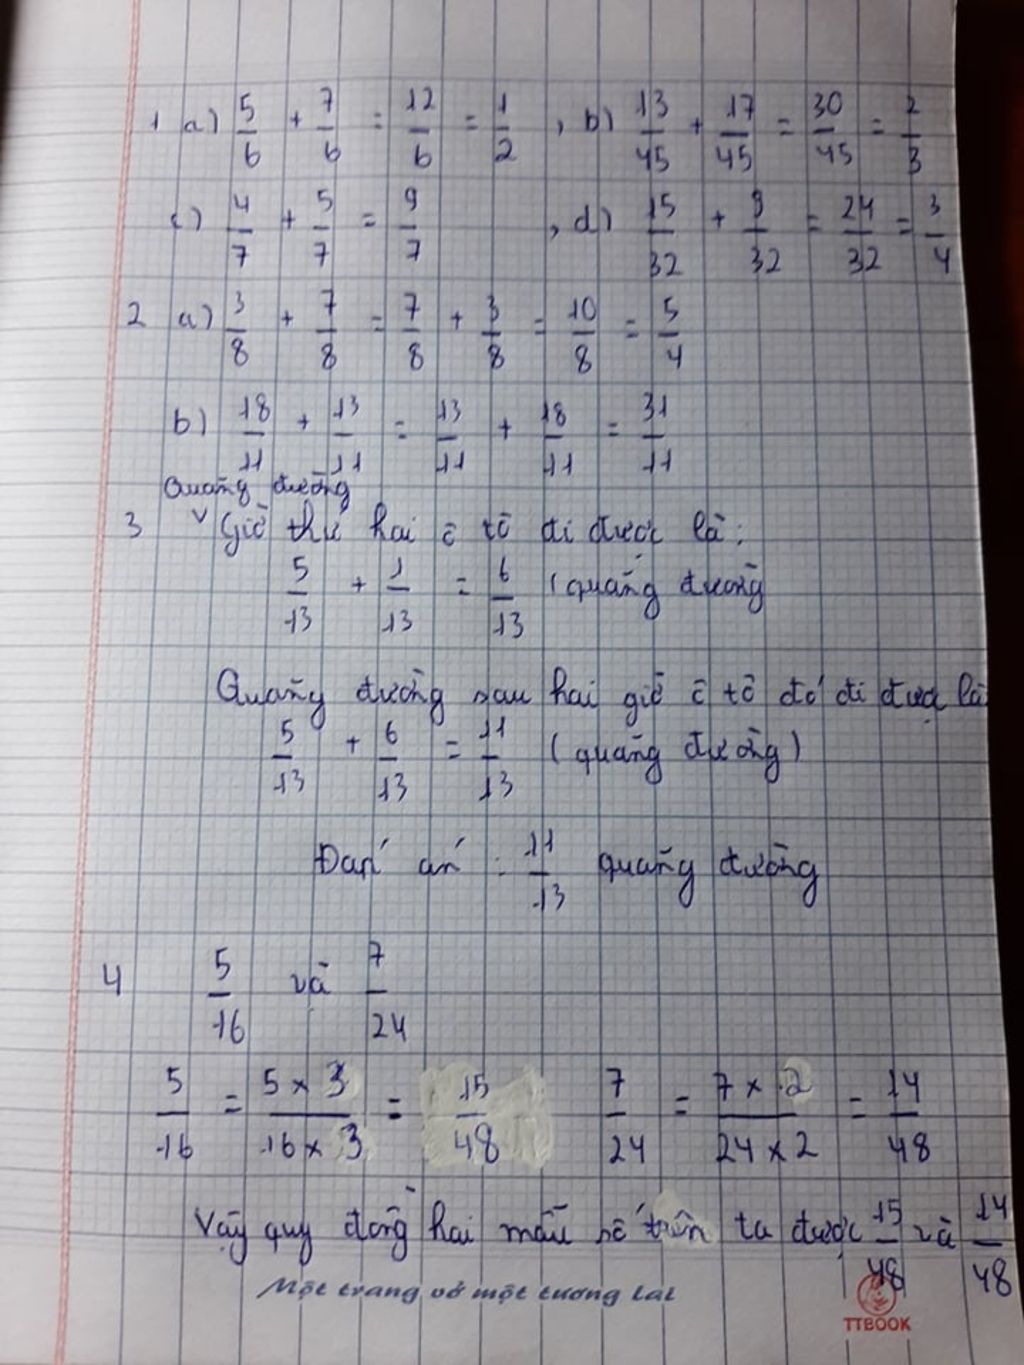 1 a) 5/6 + 7/6 = 12/6 = 1/2 , b) 13/45 + 17/45 = 30/45 = 2/3
c) 4/7 + 5/7 = 9/7 , d) 15/32 + 9/32 = 24/32 = 3/4
2 a) 3/8 + 7/8 = 7/8 + 3/8 = 10/8 = 5/4
b) 18/11 + 13/11 = 13/11 + 18/11 = 31/11
Quãng đường
3 ˅ Giờ thứ hai ô tô đi được là:
5/13 + 1/13 = 6/13 (quãng đường
Quãng đường sau hai giờ ô tô đó đi được là
5/13 + 6/13 = 11/13 (quãng đường)
Đáp án : 11/13 quãng đường
4 5/16 và 7/24
5/16 = 5 x 3/16 x 3 = 15/48 7/24 = 7 x 2/24 x 2 = 14/48
Vậy quy đồng hai mẫu số trên ta được 15/48 và 14/48
Một trang vở một tương lai
TTBOOK